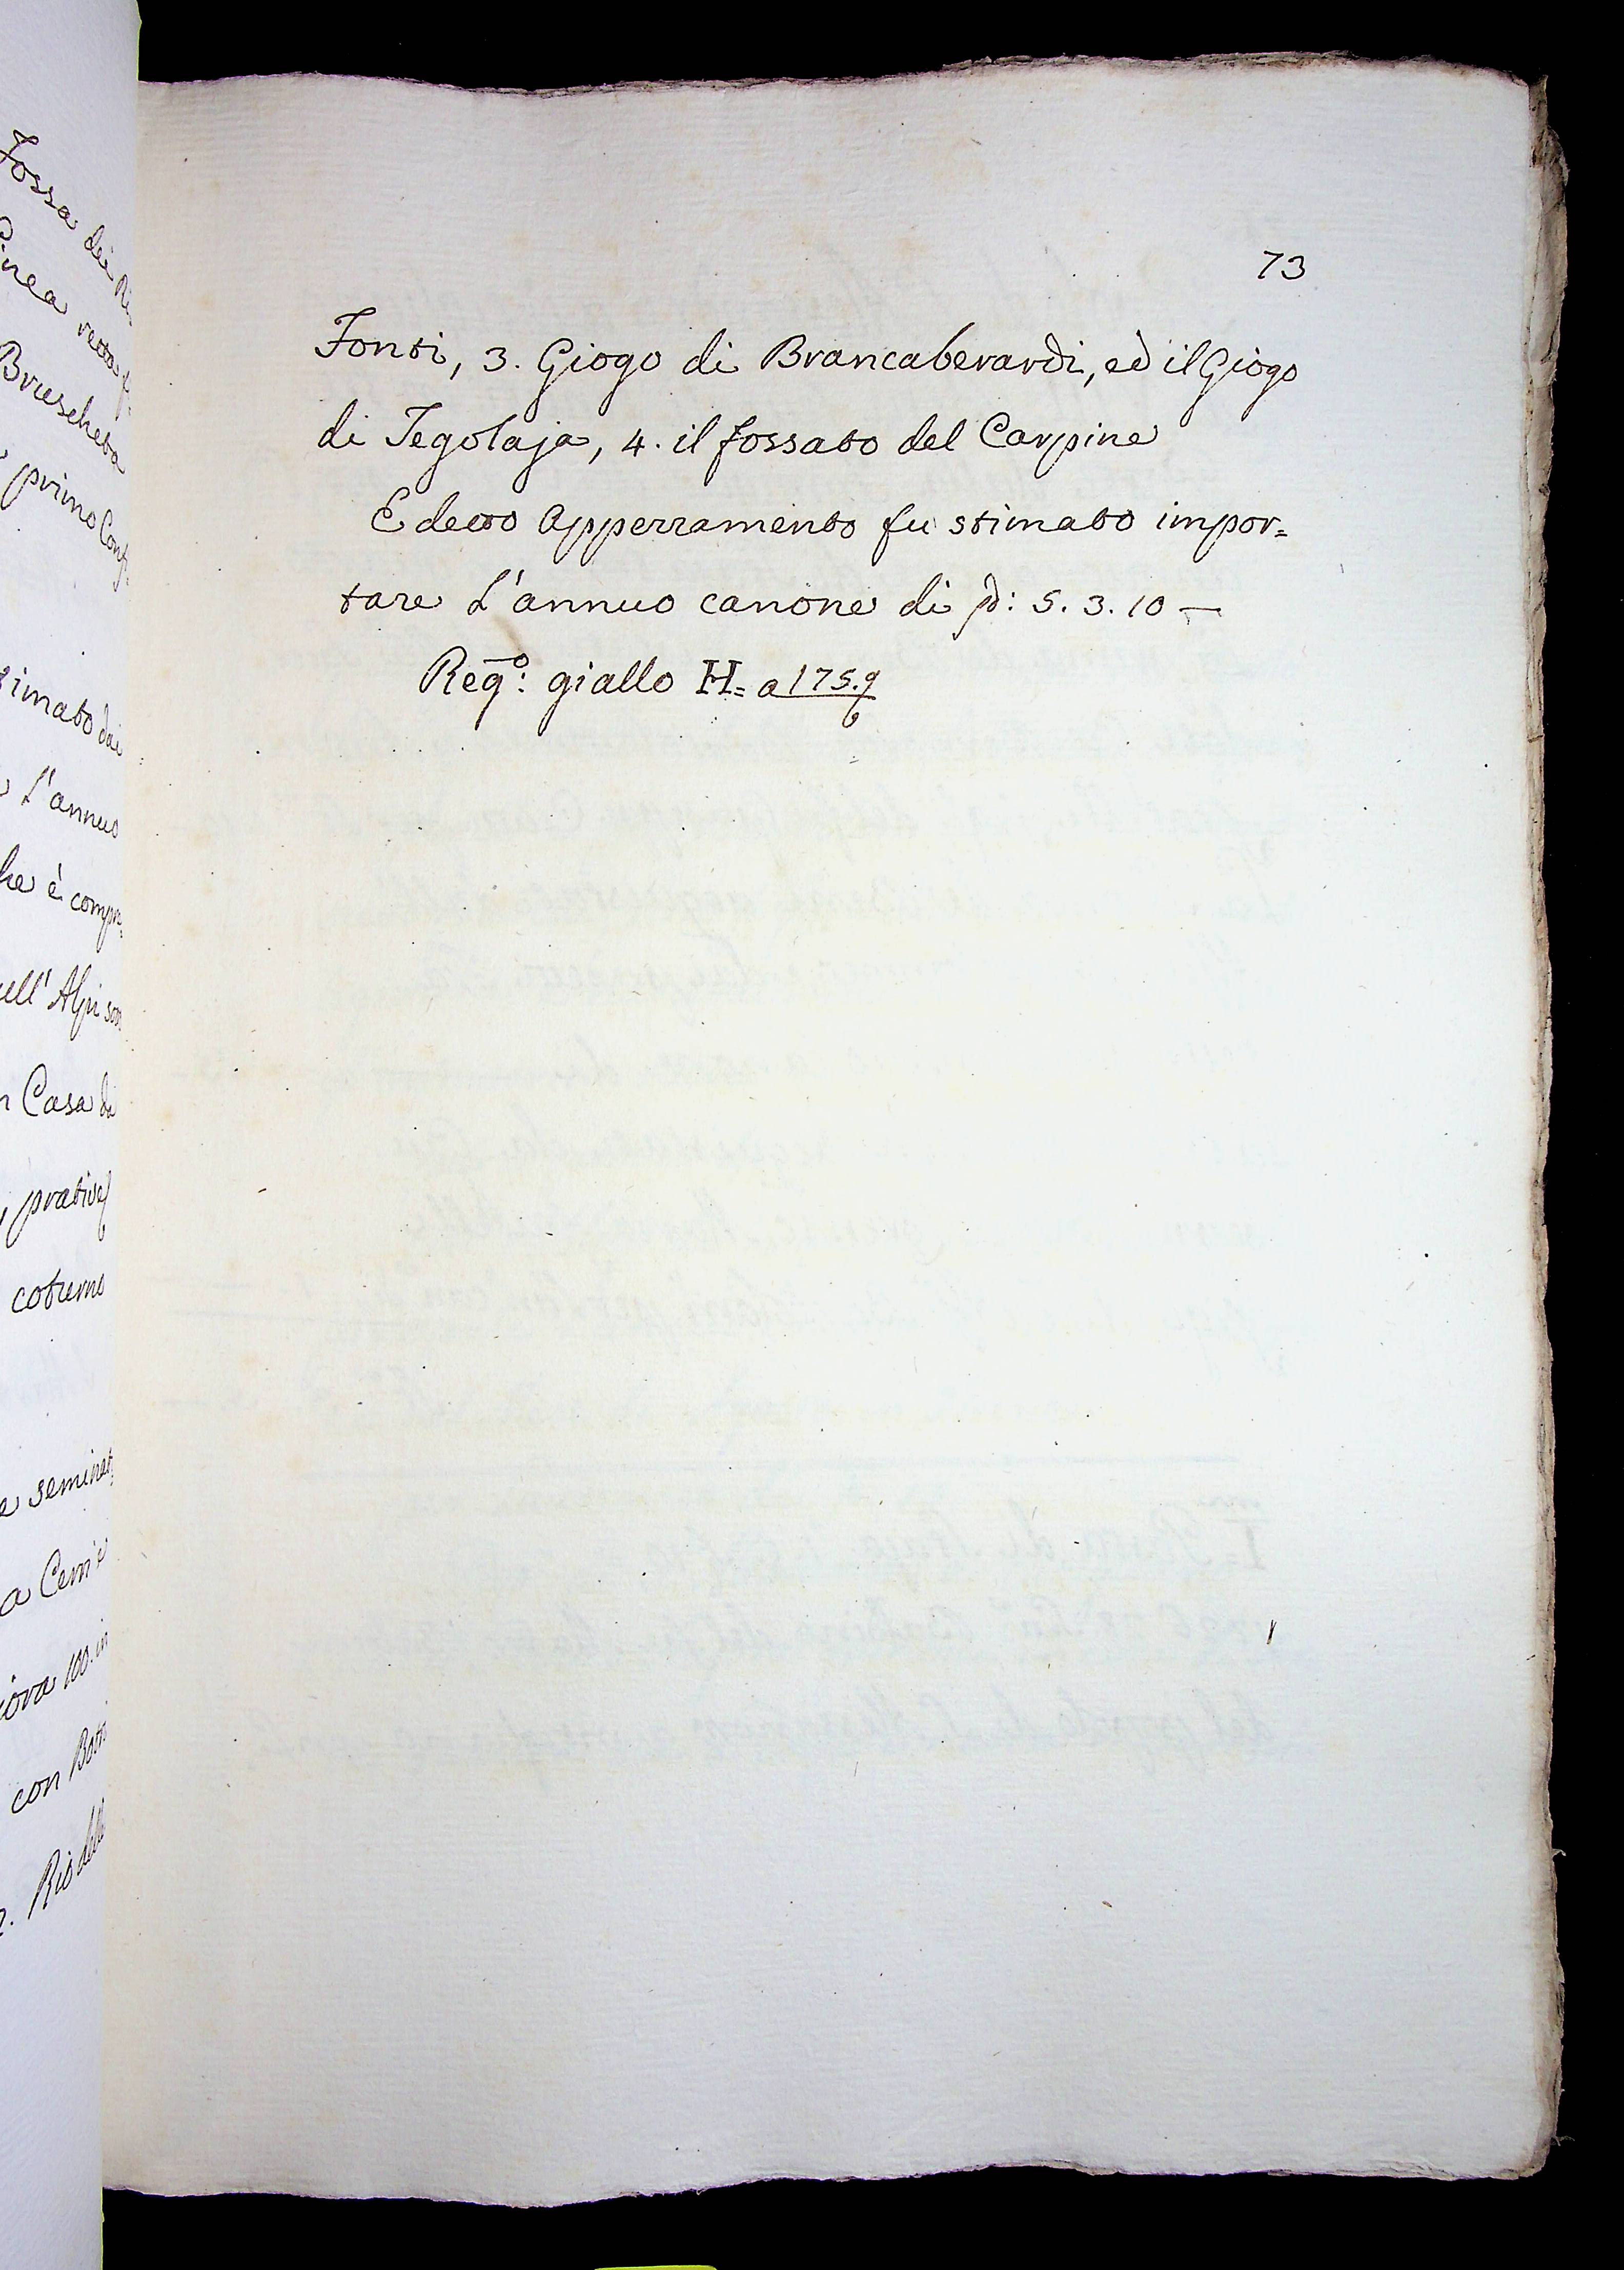 Fossa dei
Linea retta
Bruscheta
primo Conf
timato dai
l'annuo
he è compre=
ell' Alpi son
Casa da
prative
coturno
e seminat
a Cerri e
iova 100. in
con Botri
2. Rio delle
73
Fonti, 3. Giogo di Brancaberardi, ed il Giogo
di Tegolaja, 4. il fossato del Carpine
E detto Apperramento fu stimato impor=
tare L'annuo canone di 5. 3. 10 —
Reg.o: giallo H= a 175. 9